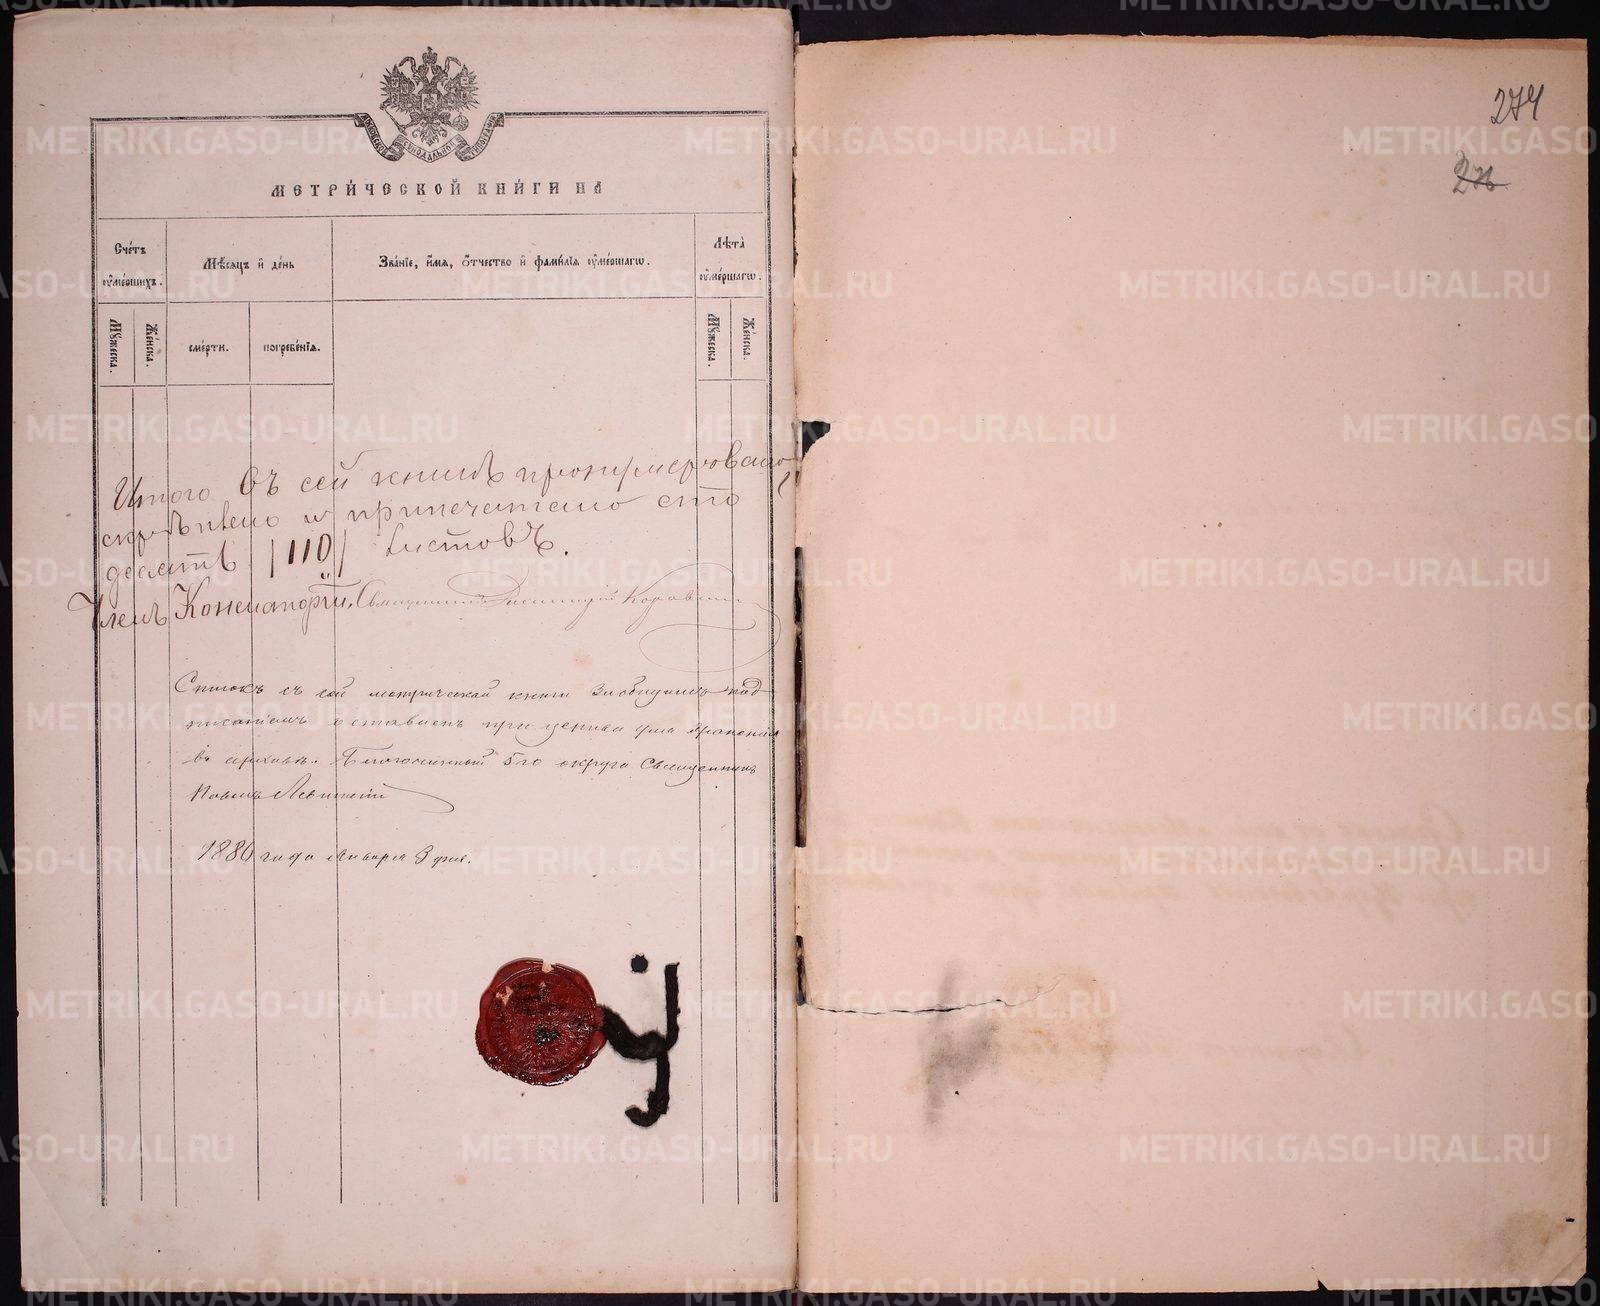 МОСКОВСКОЙ СѴНОДАЛЬНОЙ ТИПОГРАФІИ
МЕТРИ́ЧЕСКОЙ КНИ́ГИ НА
Сче́тъ ᲂу҆ме́ршихъ.
Мѣ́сяцъ и҆ де́нь
Зва́нїе, и҆́мя, ѻ҆́тчество и҆ фами́лїя ᲂу҆ме́ршагѡ.
Лѣта̀ ᲂу҆ме́ршагѡ.
Мꙋ́жеска.
Же́нска.
сме́рти.
погребе́нїя.
Мꙋ́жеска.
Же́нска.
Итого въ сей книгѣ пронумеровано,
скрѣплено и припечатано сто
десять /110/ листовъ.
Членъ Консисторіи, Священникъ Димитрій
Списокъ съ сей метрической книги за общимъ под
писаніемъ оставленъ при церкви для храненія
въ архивѣ. Благочинный 5го округа Священникъ
Павелъ Левитскій
1880 года Января 3 дня.
274
METRIKI.GASO-URAL.RU